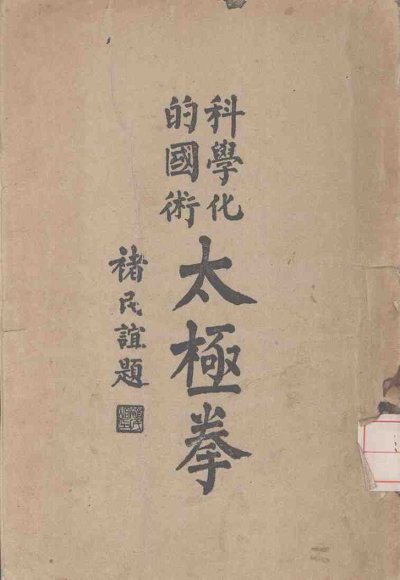 科學化
的國術
太極拳
褚民誼題